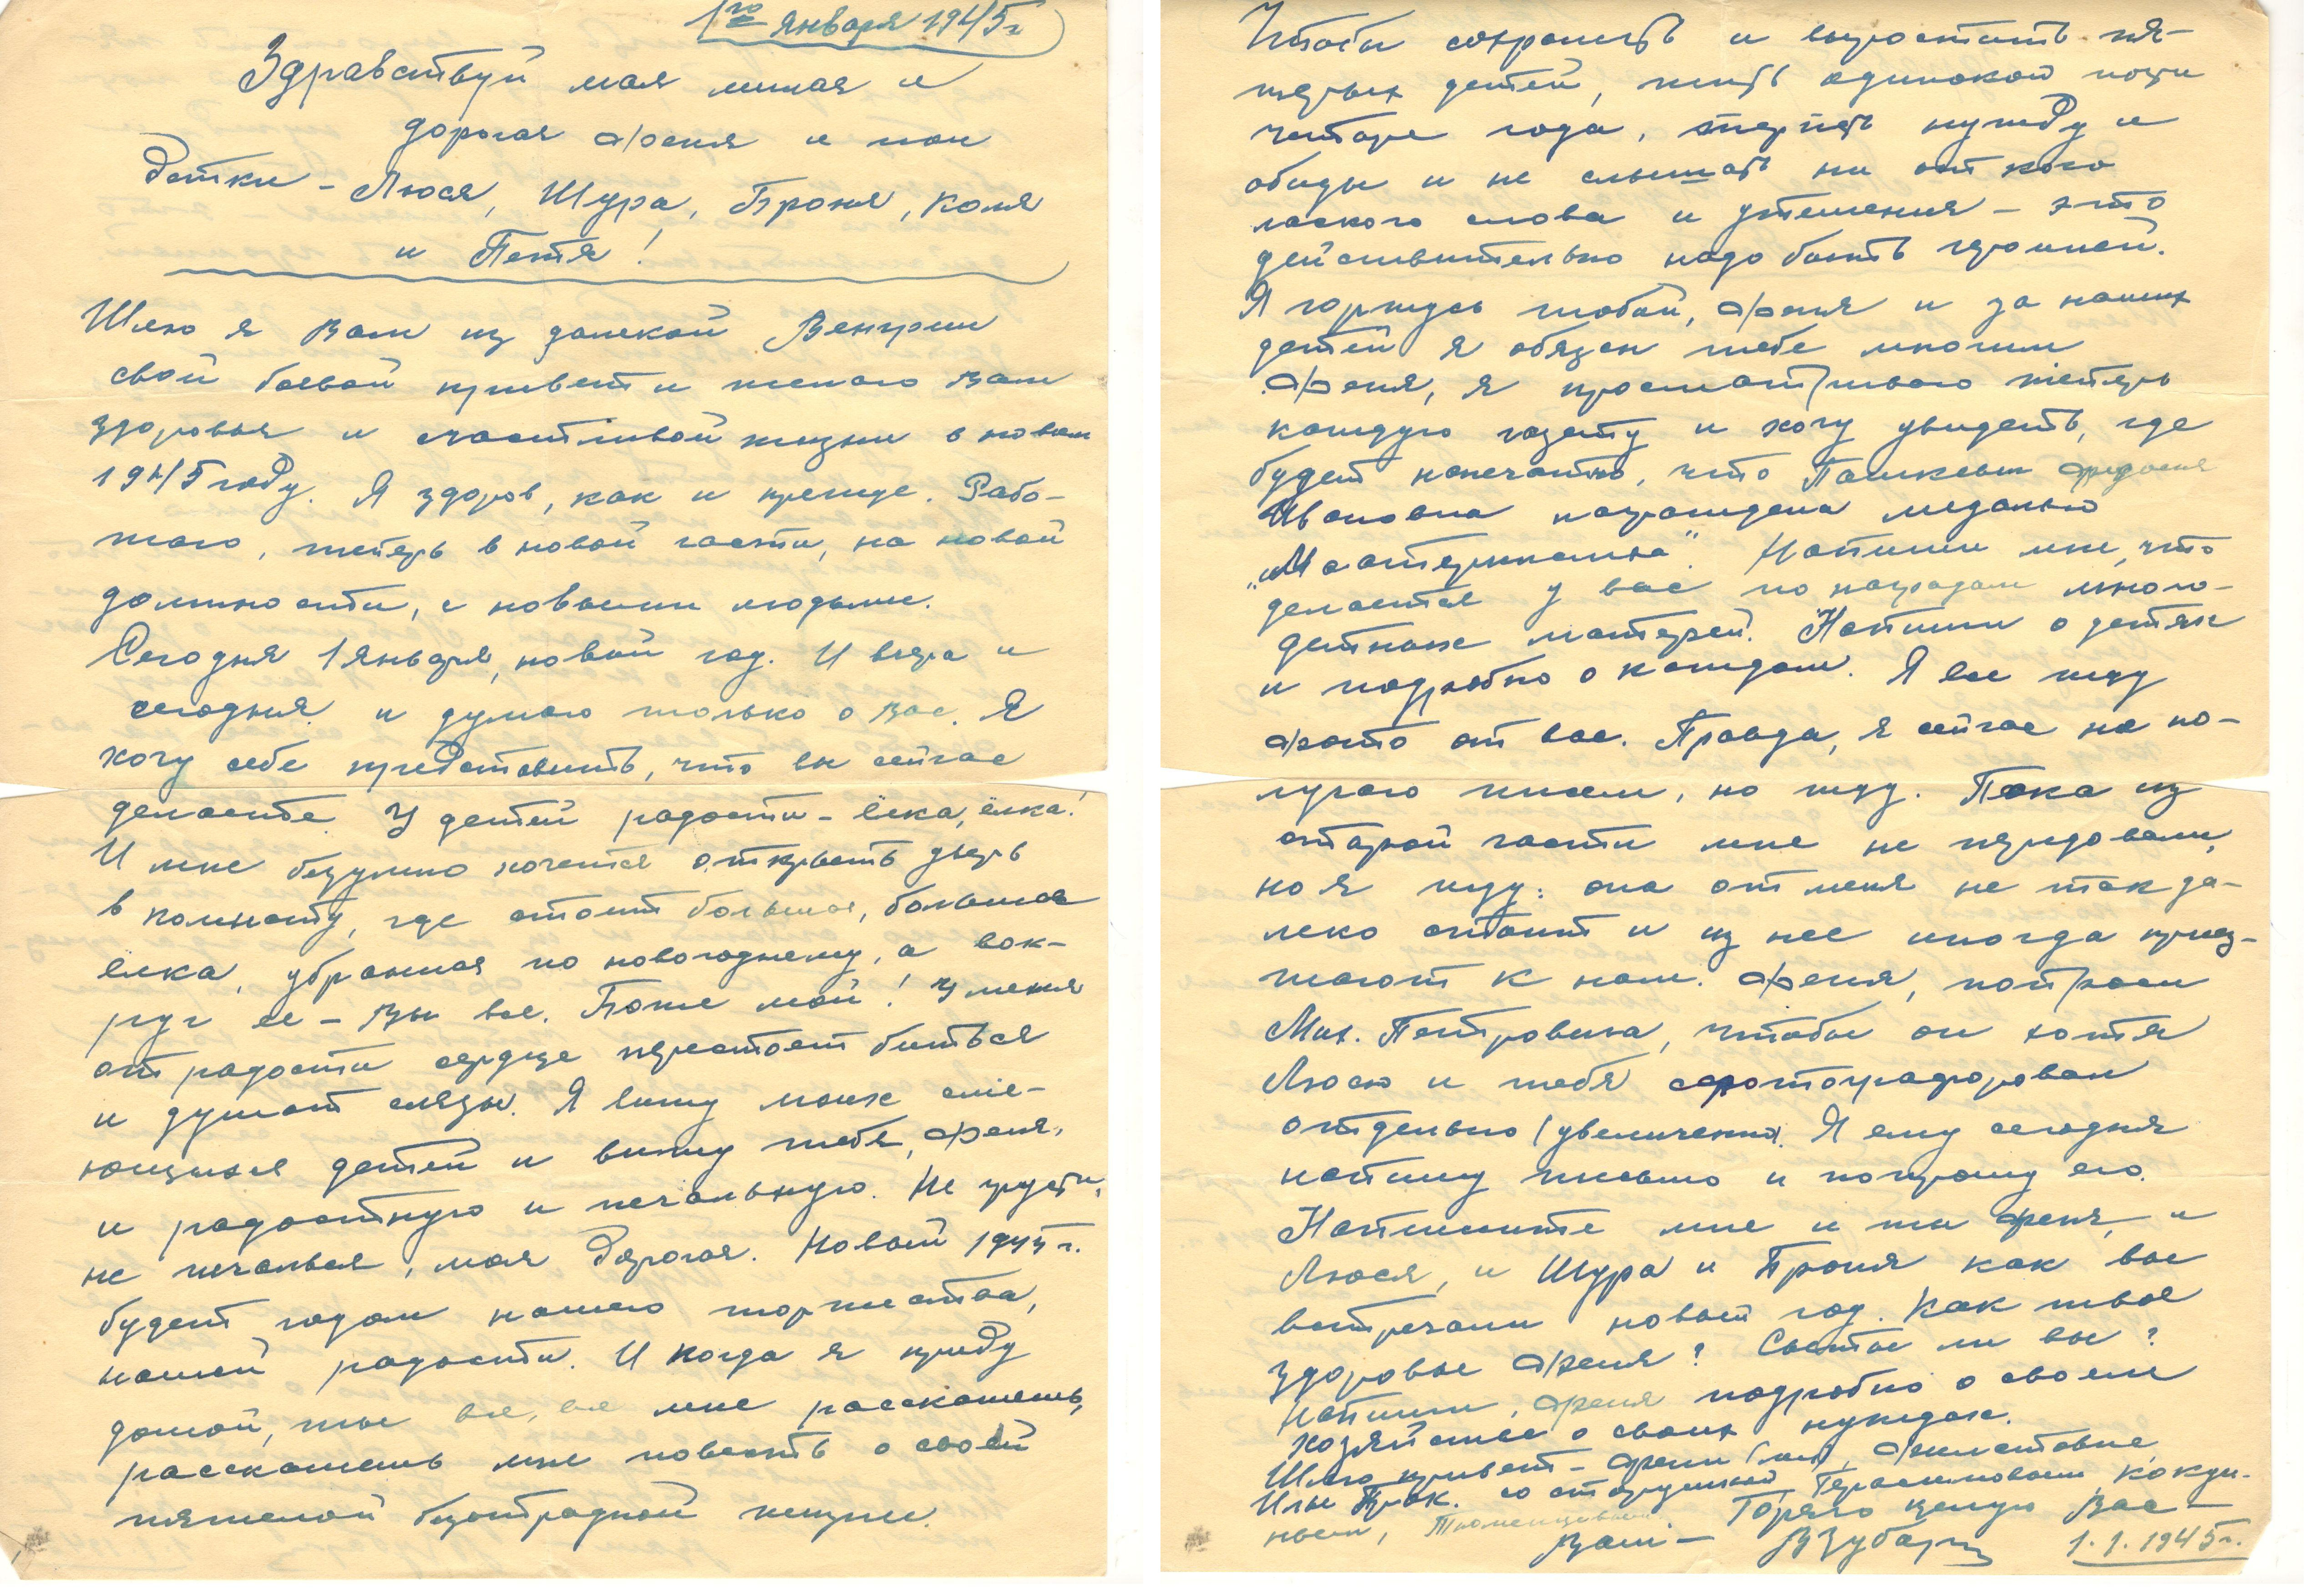 1го января 1945г
Здравствуй моя милая и
дорогая Феня и мои
детки - Люся, Шура, Броня, Коля
и Петя!
Шлю я Вам из далекой Венгрии
свой боевой привет и желаю Вам
здоровья и счастливой жизни в новом
1945 году. Я здоров, как и прежде. Рабо-
таю, теперь в новой части, на новой
должности, с новыми людьми.
Сегодня 1 января, новый год. И вчера и
сегодня и думаю только о Вас. Я
хочу себе представить, что вы сейчас
делаете. У детей радости - ёлка, ёлка!
И мне безумно хочется открыть дверь
в комнату, где стоит большая, большая
ёлка, убранная по новогоднему, а вок-
руг ее - Вы все. Боже мой! У меня
от радости сердце перестает биться
и душат слезы. Я вижу моих сме-
ющихся детей и вижу тебя, Феня,
и радостную и печальную. Не грусти,
не печалься, моя дорогая. Новый 1945 г.
будет годом нашего торжества,
нашей радости. И когда я приду
домой, ты все, все мне расскажешь,
расскажешь мне повесть о своей
тяжелой безотрадной жизни.
Чтобы сохранить и вырастить пя-
терых детей, жить одинокой почти
четыре года, терпеть нужду и
обиды и не слышать ни от кого
ласкового слова и утешения - это
действительно надо быть героиней.
Я горжусь тобой, Феня и за наших
детей я обязан тебе многим
Феня, я просматриваю теперь
каждую газету и хочу увидеть, где
будет напечатано, что Пашкевич Федосия
Ивановна награждена медалью
"Материнства". Напиши мне, что
делается у вас по наградам много-
детных матерей. Напиши о детях
и подробно о каждом. Я все жду
фото от вас. Правда, я сейчас не по-
лучаю писем, но жду. Пока из
старой части мне не передавали,
но я жду: она от меня не так да-
леко стоит и из нее иногда приез-
жают к нам. Феня, попроси
Мих. Петровича, чтобы он хотя
Люсю и тебя сфотографировал
отдельно (увеличенно). Я ему сегодня
напишу письмо и попрошу его.
Напишите мне и ты Феня, и
Люся, и Шура и Броня как вы
встречали новый год. Как твое
здоровье Феня? Сыты ли вы?
Напиши, Феня подробно о своем
хозяйстве о своих нуждах.
Шлю привет - Фени
Илье со старушкой Герасимовым, Кокди-
ным, Горячо целую Вас -
Ваш - ВЗубарь 1.1.1945г.